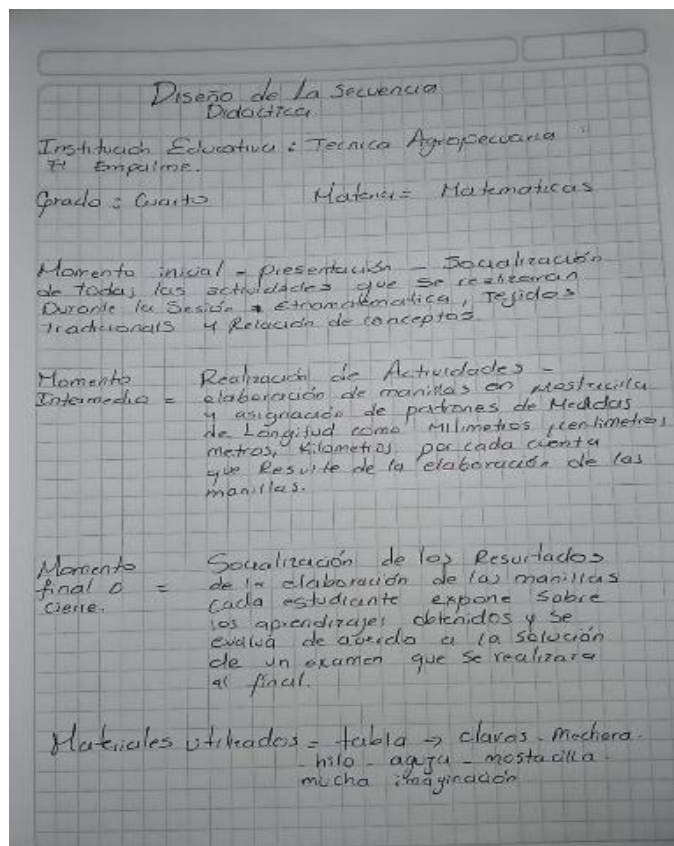 Diseño de La Secuencia
Didactica
Institución Educativa : Tecnica Agropecuaria
El Empalme.
Grado : Cuarto Materia = Matematicas
Momento inicial - presentación - Socialización
de todas las actividades que se realizaran
Durante la Sesión Etnomatematica, Tejidos
Tradicionals y Relación de conceptos.
Momento Realización de Actividades -
Intermedio = elaboración de manillas en Mostracilla
y asignación de patrones de Medidas
de Longitud como Milimetros, centimetros,
metros, Kilometros, por cada cuenta
que Resulte de la elaboración de las
manillas.
Momento Socialización de los Resultados
final o = de la elaboración de las manillas
cierre. cada estudiante expone sobre
los aprendizajes obtenidos y se
evaluá de acuerdo a la solución
de un examen que se realizara
al final.
Materiales utilizados = tabla → clavos - mechera -
- hilo - aguja - mostacilla -
mucha imaginación